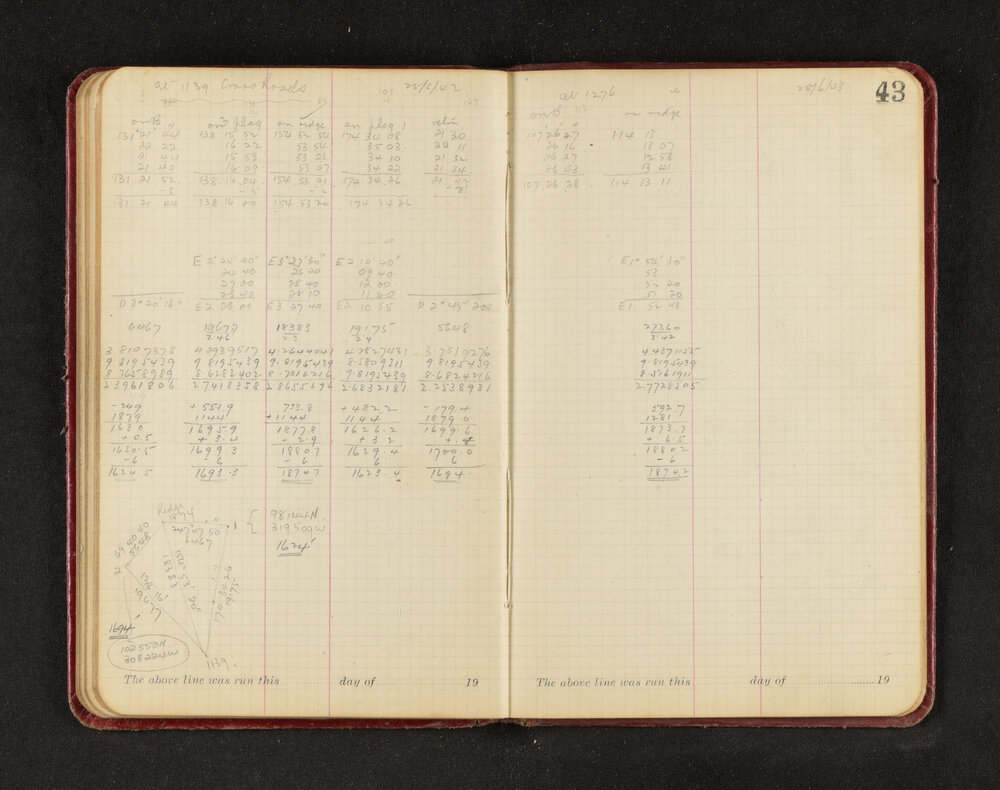 at 1139 Cross Roads 25/6/42
on B " on flag on ridge on flag 1
131° 21' 44 138 15 52 154 52 54 174 34 08 21 30
22 22 16 22 53 54 35 03 22 11
21 44 15 53 53 23 34 10 21 32
21 40 16 09 53 07 34 22 21 34
131 21 52 138 16 04 154 53 21 174 34 26 21 42
131 21 44 138 16 00 154 53 20 174 34 26
E 2° 25' 40" E 3° 27' 30" E 2 10 40"
24 40 26 20 09 40
27 00 28 40 12 00
26 40 28 10 11 20
D 3° 20' 18" E 2 26 00 E 3 27 40 E 2 10 55 D 2° 45' 20"
6467 19677 18383 19175 5648
2.46 2.3 2.4
3.8107378 4.2939517 4.2644041 4.2827431 3.7519276
9.8195439 9.8195439 9.8195439 8.5809311 9.8195439
8.7658989 8.6283402 8.7816216 9.8195439 8.6824216
2.3961806 2.7418358 2.8655696 2.6832181 2.2538931
-249 +551.9 733.8 +482.2 -179.4
1879 1144 +1144 1144 1879.0
1630 1695.9 1877.8 1626.2 1699.6
+0.5 +3.4 +2.9 +3.2 +.4
1630.5 1699.3 1880.7 1629.4 1700.0
-6 6 -6 6 6
1624.5 1693.3 1874.7 1623.4 1694
Ridge
1874
247° 47' 50"
6467
1
98144N
319509W
1624'
69 40 40
5648
2
138° 16'
19677
154° 53' 20"
18383
174° 34 26
19175
1694'
102550N
308224W
1139
The above line was run this day of 19
43
at 1276 25/6/43
on B "
107 26 27 114 13
26 16 13 07
26 27 12 58
26 43 13 41
107 26 28 114 13 11
E 1° 54' 30"
53
52 20
51 20
E 1 52 48
27360
3.42
4.4371155
9.8195439
8.5161911
2.7728505
592.7
1281
1873.7
+ 6.5
1880.2
-6
1874.2
The above line was run this day of 19